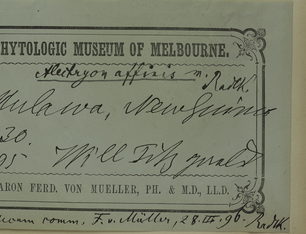 HYTOLOGIC MUSEUM OF MELBOURNE.
Alectryon affinis n. Radlk.
ulawa, New Guinea
30.
95 Will Fitzgerald
ARON FERD. VON MUELLER, PH. & M.D., LL.D.
comm. F. v. Müller, 28. 96. Radlk.